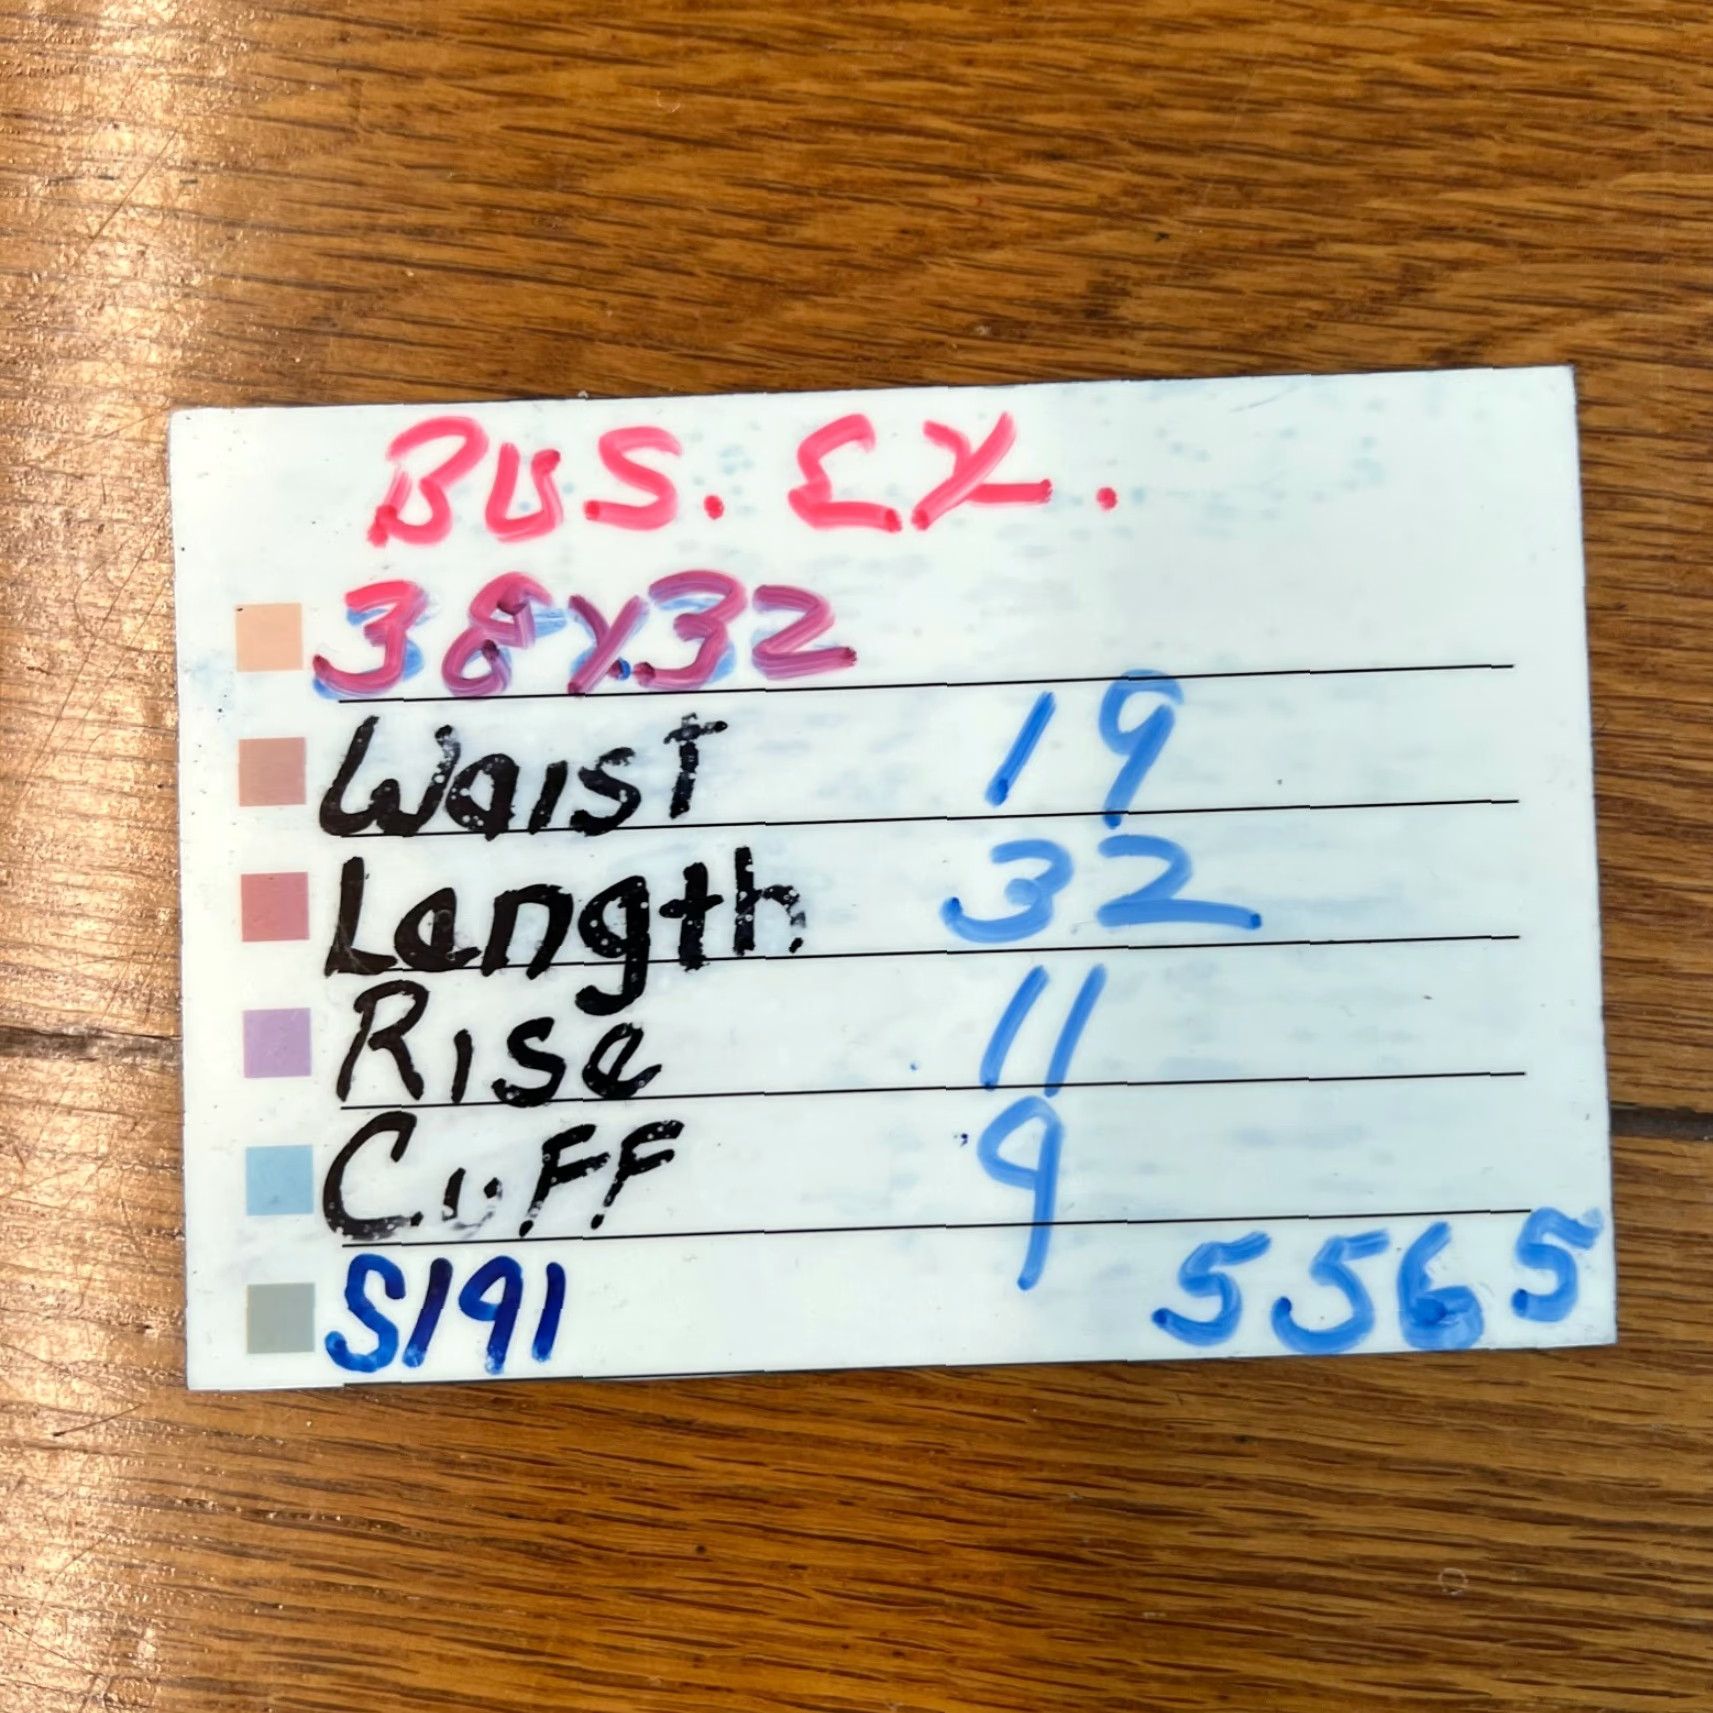 BUS. EX.
38x32
Waist 19
Length 32
Rise 11
Cuff 9
S191 5565